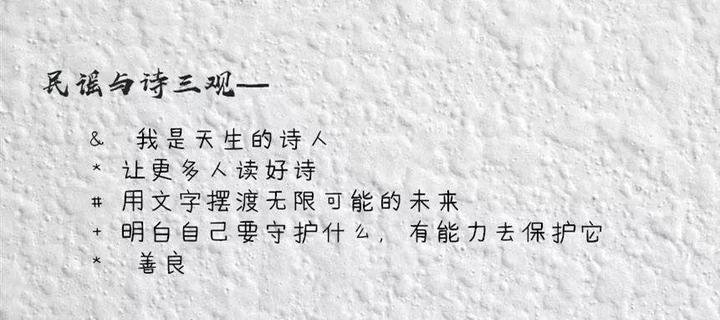 民谣与诗三观—
& 我是天生的诗人
* 让更多人读好诗
# 用文字摆渡无限可能的未来
+ 明白自己要守护什么，有能力去保护它
* 善良